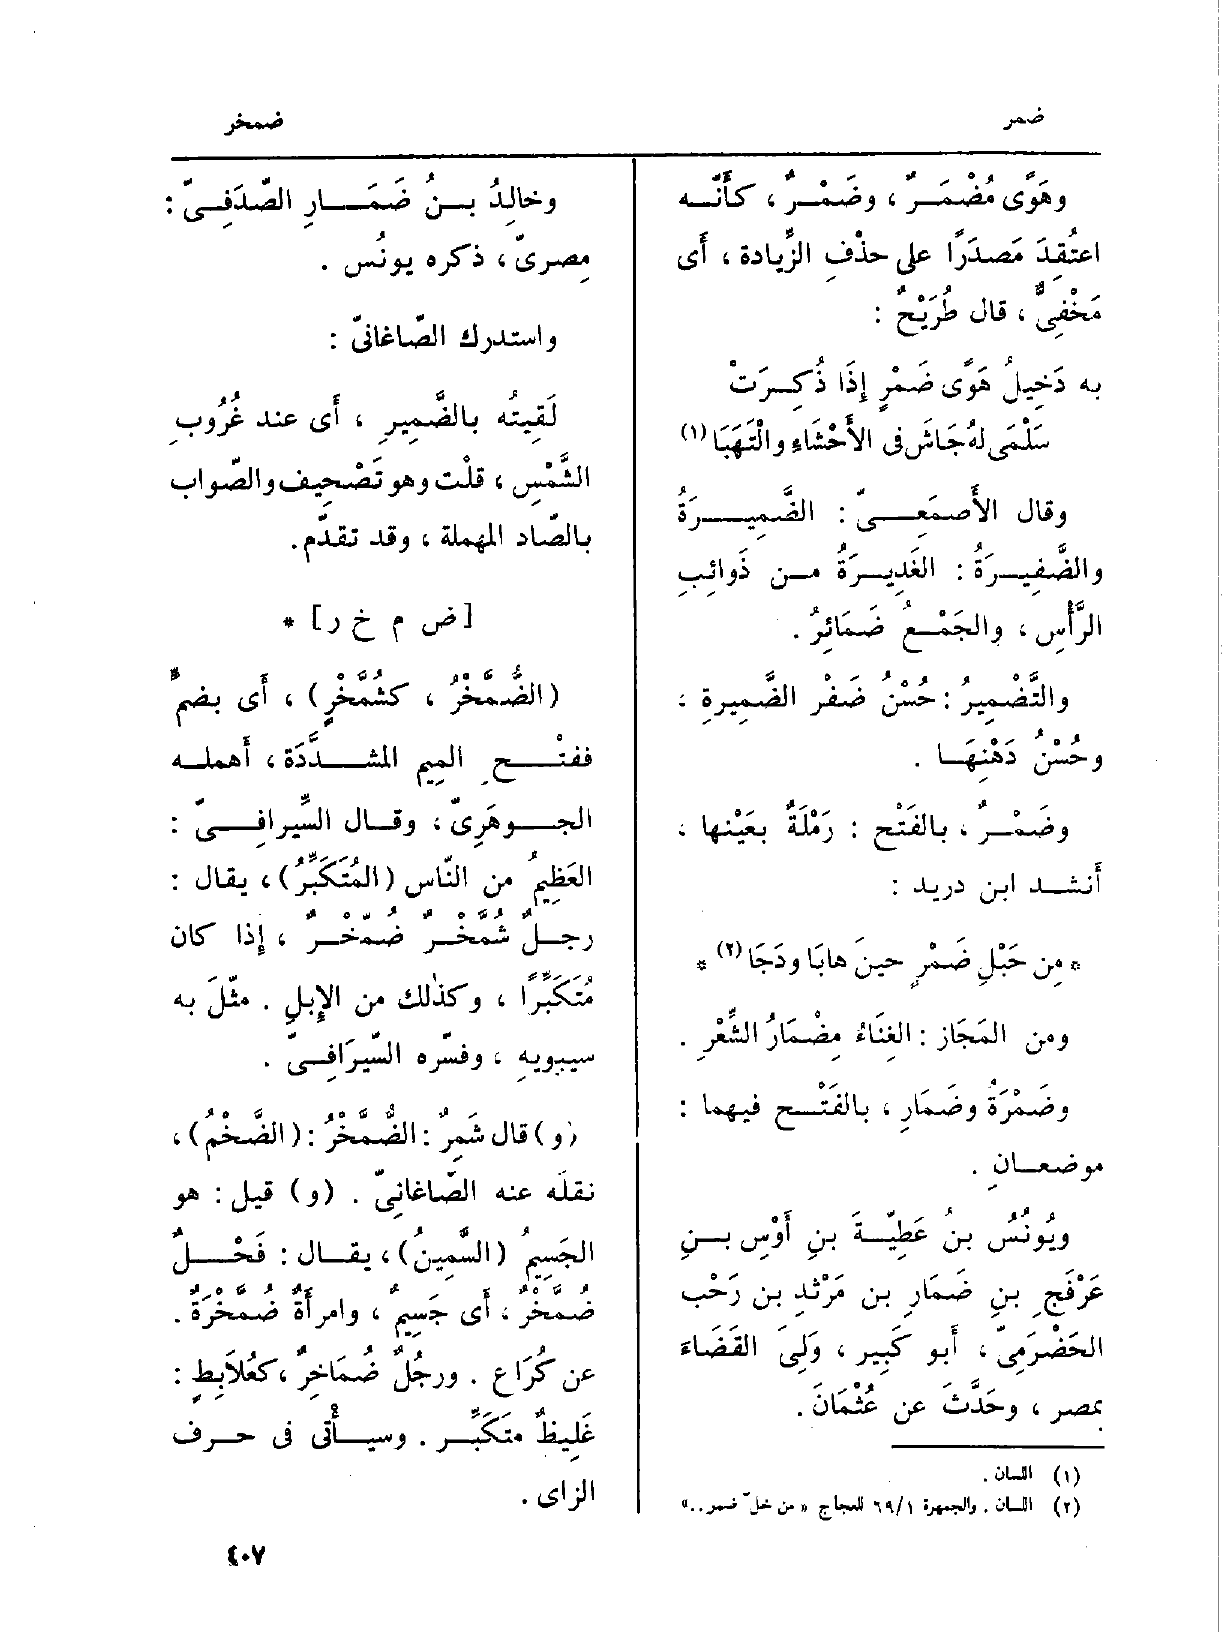 ضمر
ضمخر
وهَوًى مُضْمَرٌ ، وضَمْرٌ ، كأَنَّه
اعتُقِدَ مَصدَرًا على حذْفِ الزِّيادة ، أَى
مَخْفِىٌّ ، قال طُرَيْحٌ :
به دَخِيلُ هَوًى ضَمْرٍ إِذَا ذُكِرَتْ
سَلْمَى لهُ جَاشَ فى الأَحْشَاءِ والْتَهَبَا (١)
وقال الأَصمَعِىّ : الضَّمِيرَةُ
والضَّفِيرَةُ : الغَدِيرَةُ من ذَوائِبِ
الرَّأْسِ ، والجَمْعُ ضَمَائرُ .
والتَّضْمِيرُ : حُسْنُ ضَفْرِ الضَّمِيرةِ ؛
وحُسْنُ دَهْنِهَا .
وضَمْرٌ ، بالفَتْح : رَمْلَةٌ بعَيْنها ،
أَنشد ابن دريد :
* مِن حَبْلِ ضَمْرٍ حينَ هابَا ودَجَا (٢) *
ومن المَجَاز : الغِنَاءُ مِضْمَارُ الشِّعْرِ .
وضَمْرَةُ وضَمَارِ ، بالفَتْح فيهما :
موضعانِ .
ويُونُسُ بنُ عَطِيَّةَ بنِ أَوْسِ بنِ
عَرْفَجِ بنِ ضَمَارِ بن مَرْثدِ بن رَحْب
الحَضْرَمِىّ ، أَبو كَبير ، وَلِىَ القَضَاءَ
بمصر ، وحَدَّثَ عن عُثْمَانَ .
(١) اللسان .
(٢) اللسان . والجمهرة ٦٩/١ للعجاج « من خلّ ضمر .. »
وخالِدُ بنُ ضَمَارِ الصَّدَفِىّ :
مِصرىّ ، ذكره يونُس .
واستدرك الصّاغانىّ :
لَقِيتُه بالضَّمِيرِ ، أَى عند غُرُوبِ
الشَّمْسِ ، قلْت وهو تَصْحِيف والصّواب
بالصّاد المهملة ، وقد تقدّم .
[ ض م خ ر ] *
(الضُّمَّخْرُ ، كشُمَّخْرٍ) ، أَى بضمٍّ
ففتْحِ الميِم المشدَّدَة ، أَهمله
الجوهَرِىّ ، وقال السِّيرافِىّ :
العَظِيمُ من النّاس (المُتَكَبِّرُ) ، يقال :
رجلٌ شُمَّخْرٌ ضُمّخْرٌ ، إِذا كان
مُتَكَبِّرًا ، وكذٰلك من الإِبلِ . مثّلَ به
سيبويهِ ، وفسّره السِّيَرافِىّ .
(و) قال شَمِرٌ : الضُّمَّخْرُ : (الضَّخْمُ) ،
نقلَه عنه الصّاغانِىّ . (و) قيل : هو
الجَسِيمُ (السَّمِينُ) ، يقال : فَحْلٌ
ضُمَّخْرٌ ، أَى جَسِيمٌ ، وامرأَةٌ ضُمَّخْرَةٌ .
عن كُرَاع . ورجُلٌ ضُمَاخِرٌ ، كعُلاَبِطٍ :
غَلِيظٌ متَكَبِّر . وسيأْتى فى حرف
الزاى .
٤٠٧